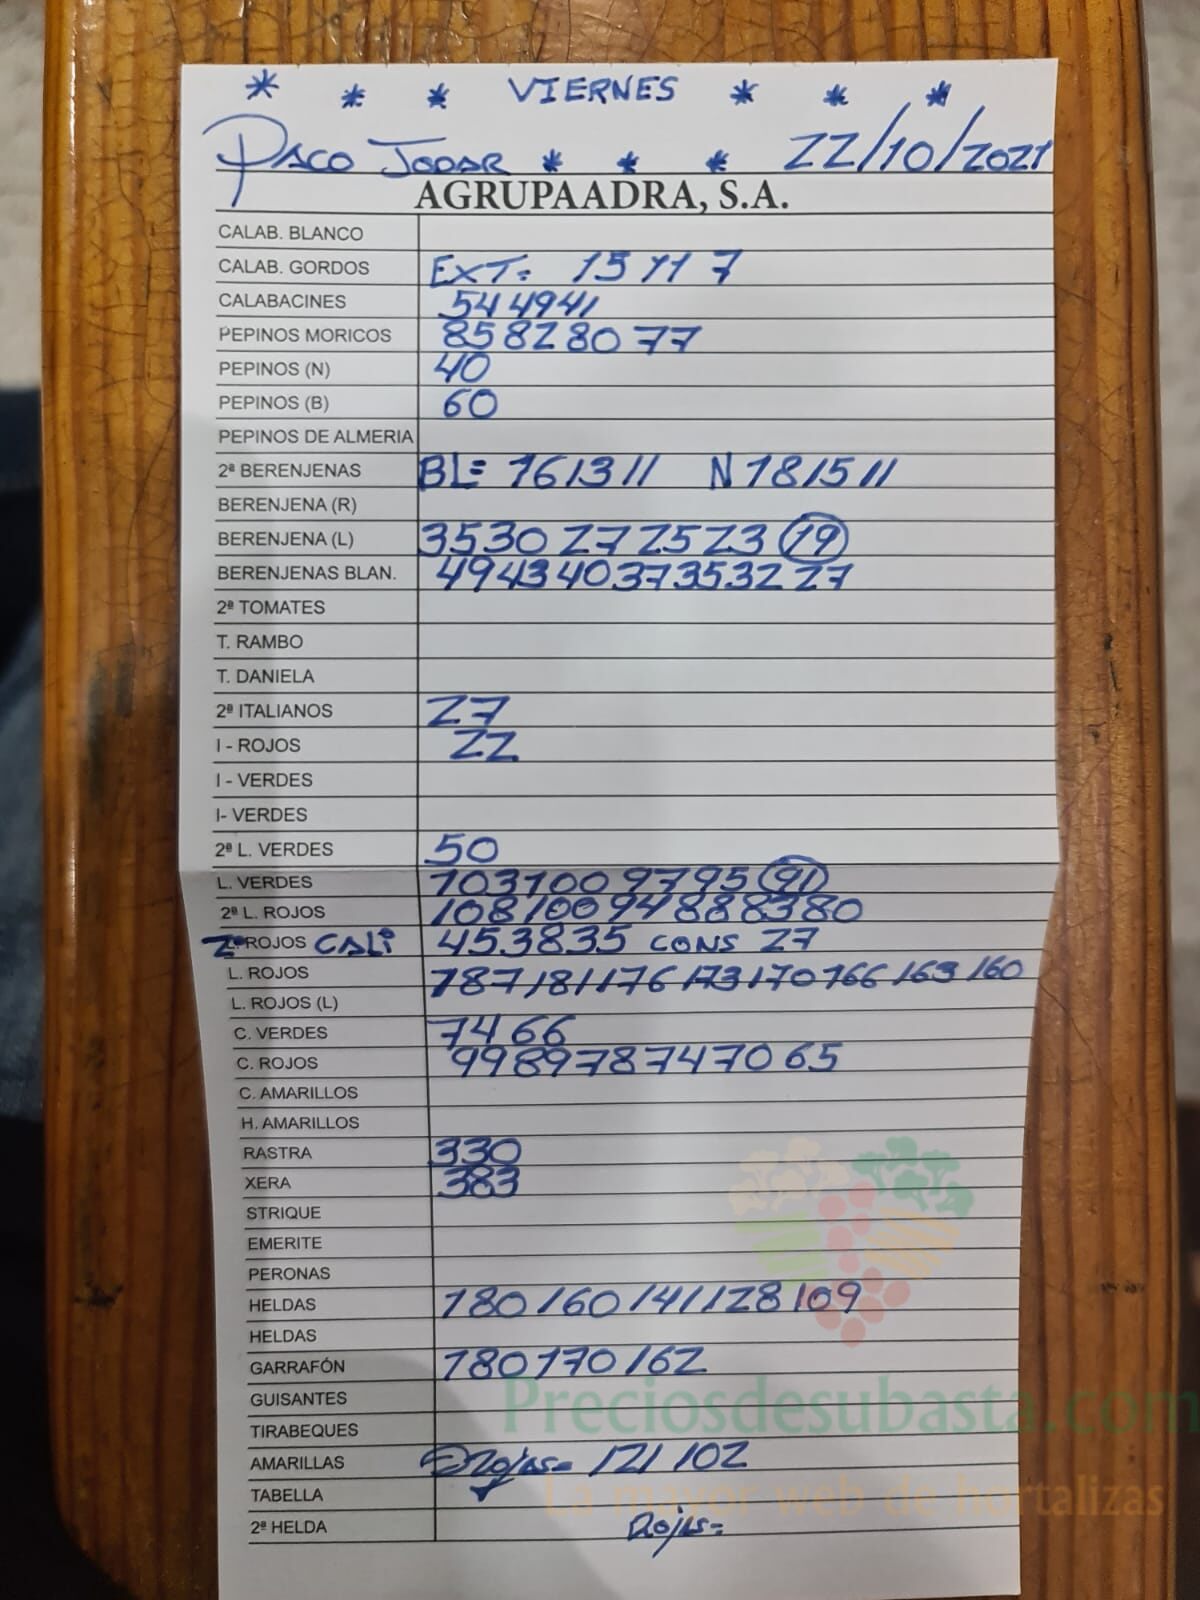 * * * VIERNES * * *
PACO JODAR * * * 22/10/2021
AGRUPAADRA, S.A.
CALAB. BLANCO
CALAB. GORDOS EXT= 15 11 7
CALABACINES 54 49 41
PEPINOS MORICOS 85 82 80 77
PEPINOS (N) 40
PEPINOS (B) 60
PEPINOS DE ALMERIA
2ª BERENJENAS BL= 16 13 11 N 18 15 11
BERENJENA (R)
BERENJENA (L) 35 30 27 25 23 19
BERENJENAS BLAN. 49 43 40 37 35 32 27
2ª TOMATES
T. RAMBO
T. DANIELA
2ª ITALIANOS 27
I - ROJOS 22
I - VERDES
I- VERDES
2ª L. VERDES 50
L. VERDES 103 100 97 95 91
2ª L. ROJOS 108 100 94 88 83 80
2ª ROJOS CALI 45 38 35 CONS 27
L. ROJOS 187 181 176 173 170 166 163 160
L. ROJOS (L)
C. VERDES 74 66
C. ROJOS 99 89 78 74 70 65
C. AMARILLOS
H. AMARILLOS
RASTRA 330
XERA 383
STRIQUE
EMERITE
PERONAS
HELDAS 180 160 141 128 109
HELDAS
GARRAFÓN 180 170 162
GUISANTES
Preciosdesubasta.com
TIRABEQUES
AMARILLAS Rojas= 121 102
TABELLA
La mayor web de hortalizas
2ª HELDA Rojas=